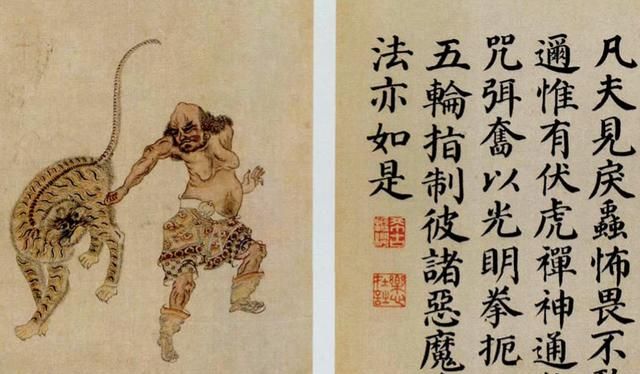 凡夫見戾蟲怖畏不
邇惟有伏虎禪神通
咒弭奮以光明拳扼
五輪指制彼諸惡魔
法亦如是